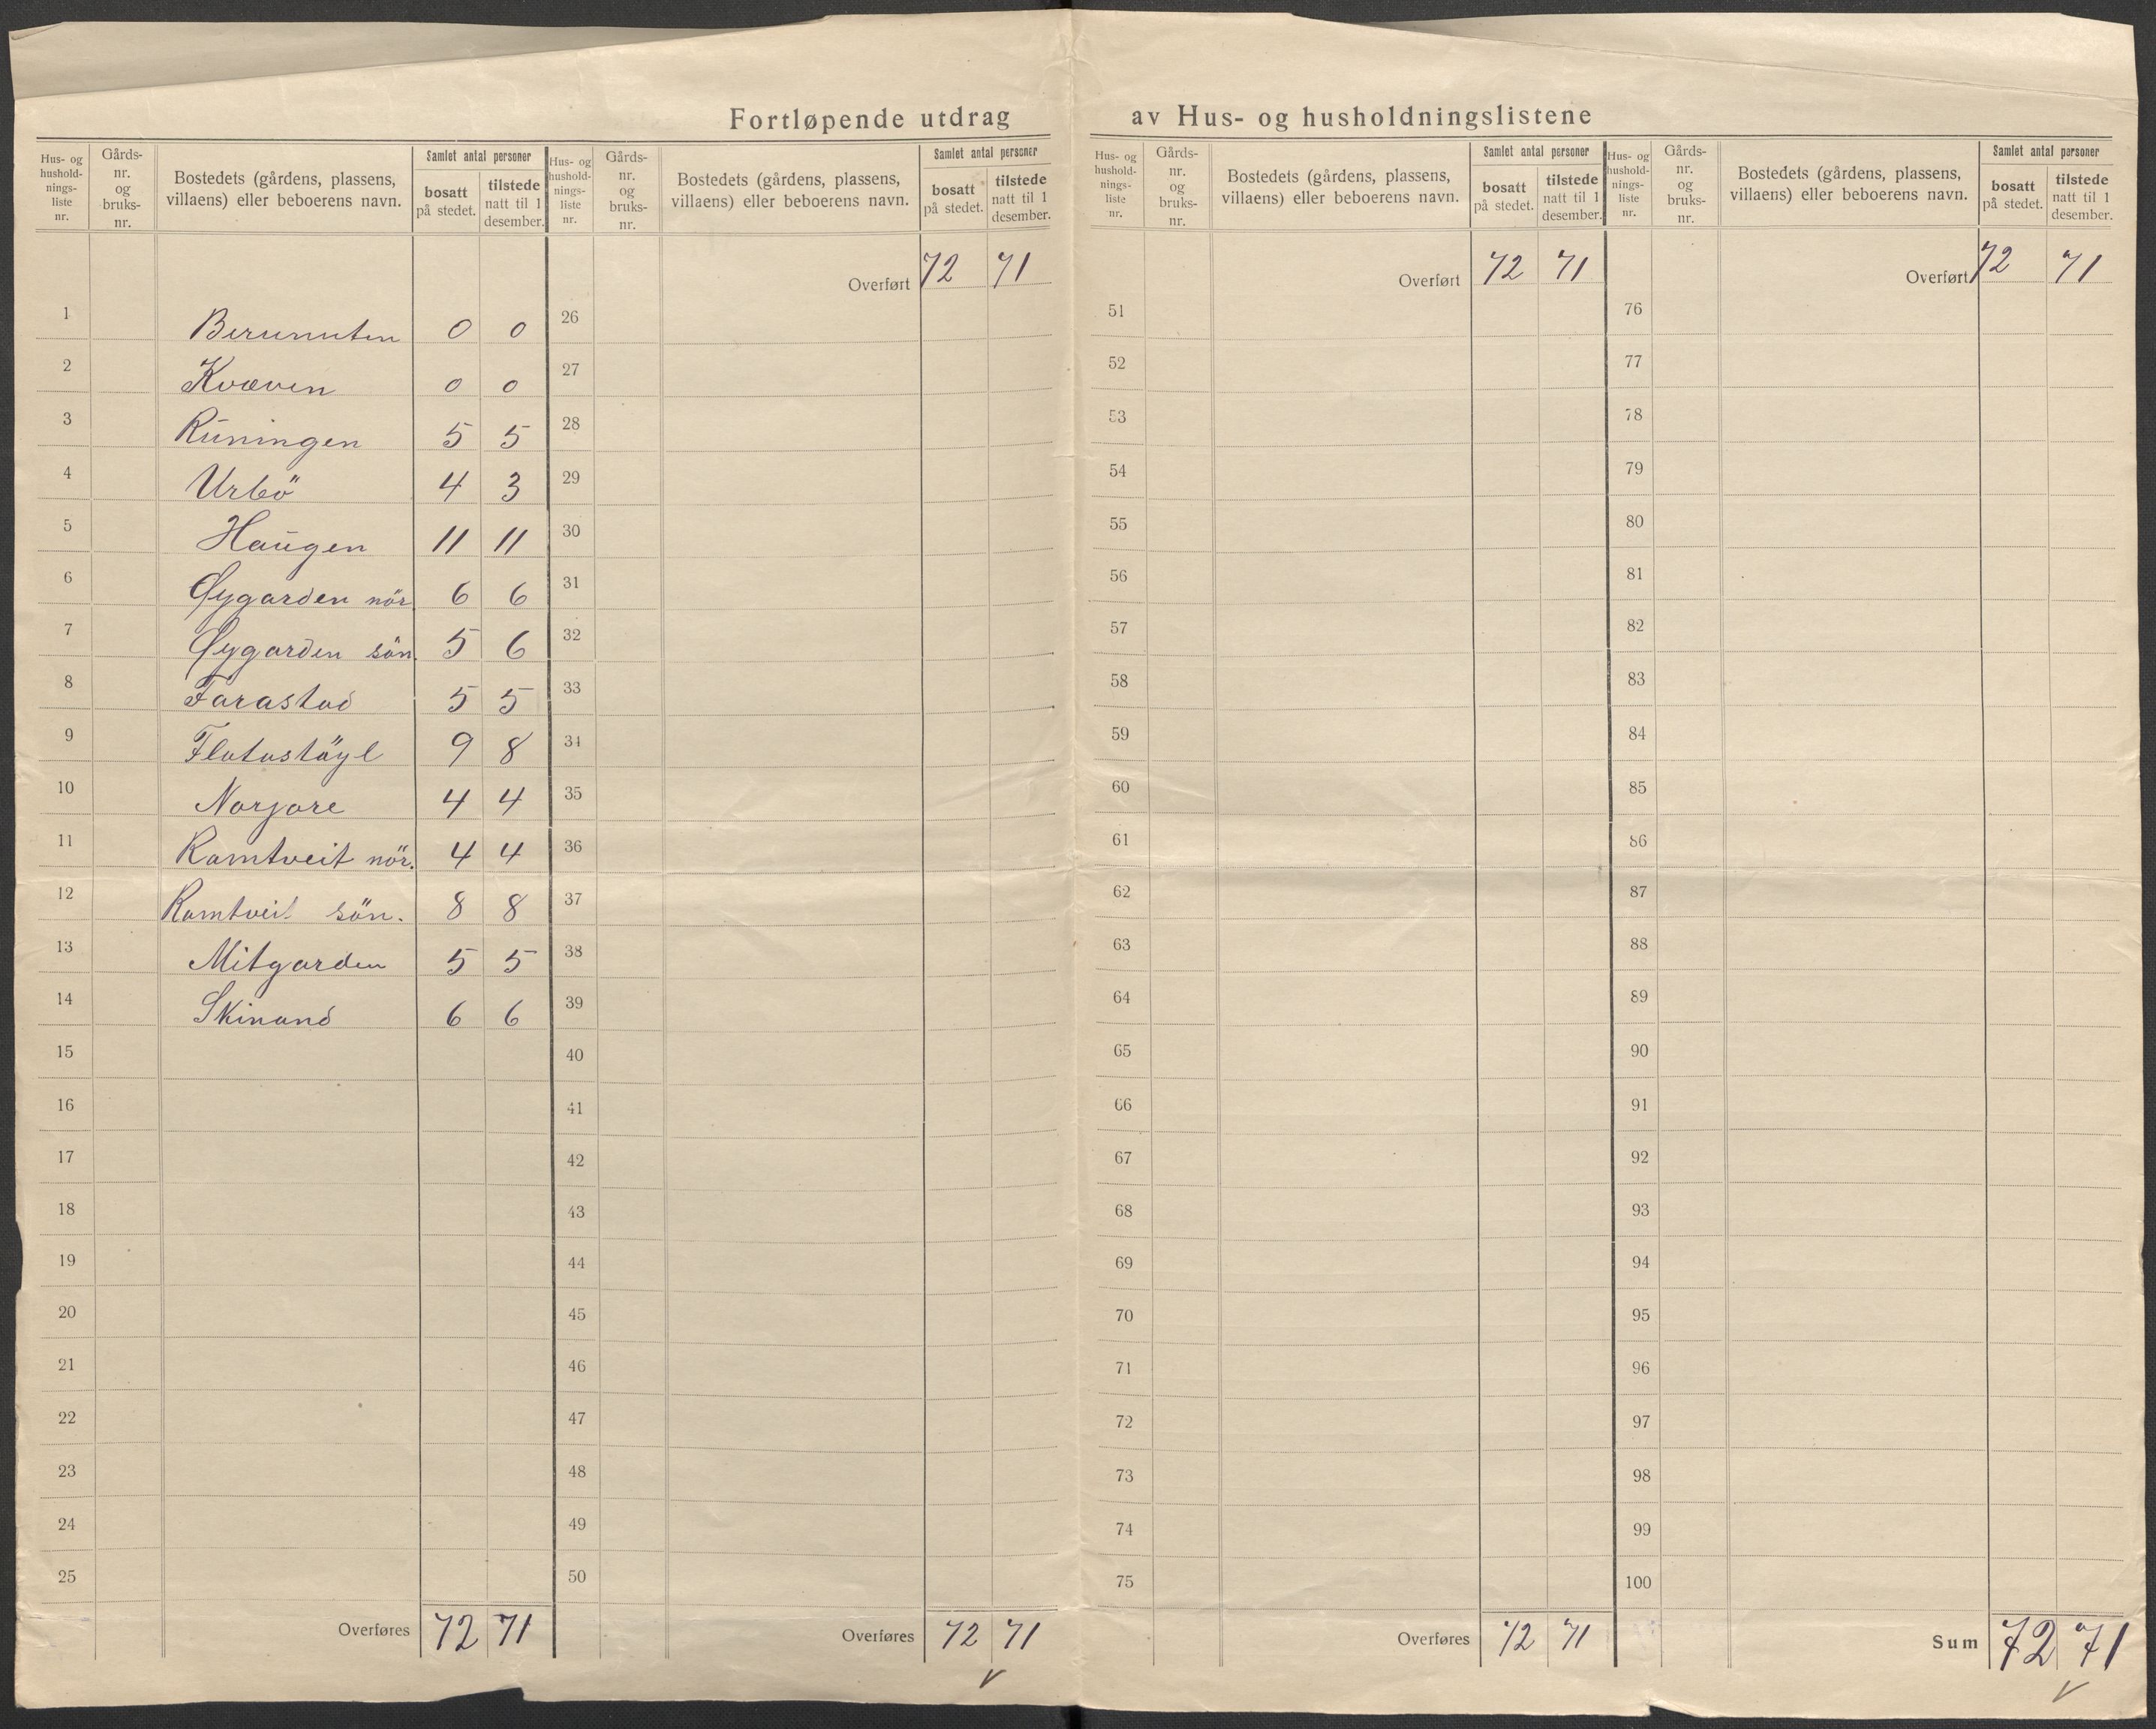 Fortløpende utdrag av Hus- og husholdningslistene
Hus- og hushold- nings- liste nr.
Gårds- nr. og bruks- nr.
Bostedets (gårdens, plassens, villaens) eller beboerens navn.
Samlet antal personer
bosatt på stedet.
tilstede natt til 1 desember.
1 Berunuten 0 0
2 Kvæven 0 0
3 Runingen 5 5
4 Urbö 4 3
5 Haugen 11 11
6 Øygarden nör. 6 6
7 Øygarden sön. 5 6
8 Farastad 5 5
9 Flatastöyl 9 8
10 Norjore 4 4
11 Ramtveit nör. 4 4
12 Ramtveit sön. 8 8
13 Mitgarden 5 5
14 Skinand 6 6
15
16
17
18
19
20
21
22
23
24
25
Overføres 72 71
Hus- og hushold- nings- liste nr.
Gårds- nr. og bruks- nr.
Bostedets (gårdens, plassens, villaens) eller beboerens navn.
Samlet antal personer
bosatt på stedet.
tilstede natt til 1 desember.
Overført 72 71
26
27
28
29
30
31
32
33
34
35
36
37
38
39
40
41
42
43
44
45
46
47
48
49
50
Overføres 72 71
Hus- og hushold- nings- liste nr.
Gårds- nr. og bruks- nr.
Bostedets (gårdens, plassens, villaens) eller beboerens navn.
Samlet antal personer
bosatt på stedet.
tilstede natt til 1 desember.
Overført 72 71
51
52
53
54
55
56
57
58
59
60
61
62
63
64
65
66
67
68
69
70
71
72
73
74
75
Overføres 72 71
Hus- og hushold- nings- liste nr.
Gårds- nr. og bruks- nr.
Bostedets (gårdens, plassens, villaens) eller beboerens navn.
Samlet antal personer
bosatt på stedet.
tilstede natt til 1 desember.
Overført 72 71
76
77
78
79
80
81
82
83
84
85
86
87
88
89
90
91
92
93
94
95
96
97
98
99
100
Sum 72 71